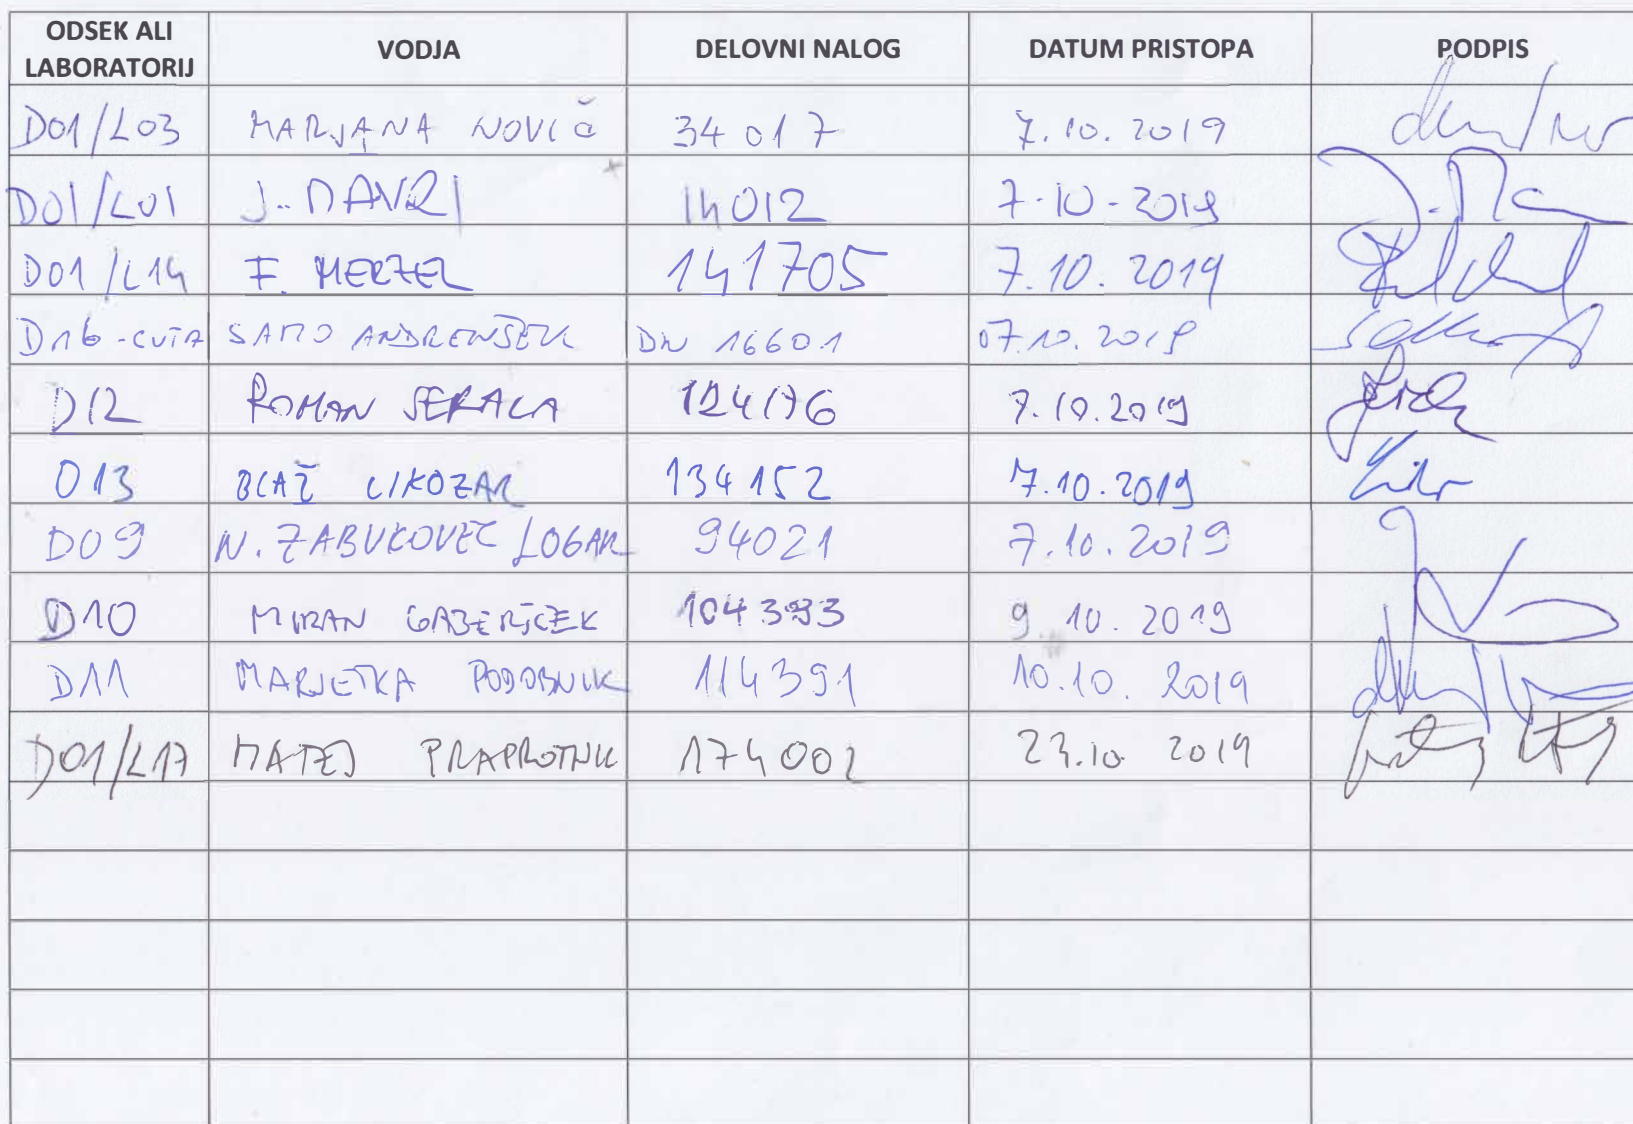 ODSEK ALI LABORATORIJ VODJA DELOVNI NALOG DATUM PRISTOPA PODPIS
D01/L03 MARJANA NOVIČ 34017 7.10.2019
D01/L01 J. MAVRI 14012 7.10-2019
D01/L14 F. MERZEL 141705 7.10.2019
D16-CVTA SAMO ANDRENŠEK DN 16601 07.10.2019
D12 ROMAN JERALA 124176 7.10.2019
D13 BLAŽ LIKOZAR 134152 7.10.2019
D09 N. ZABUKOVEC LOGAR 94021 7.10.2019
D10 MIRAN GABERŠČEK 104393 9.10.2019
D11 MARJETKA PODOBNIK 114391 10.10.2019
D01/L17 MATEJ PRAPROTNIK 174002 23.10 2019